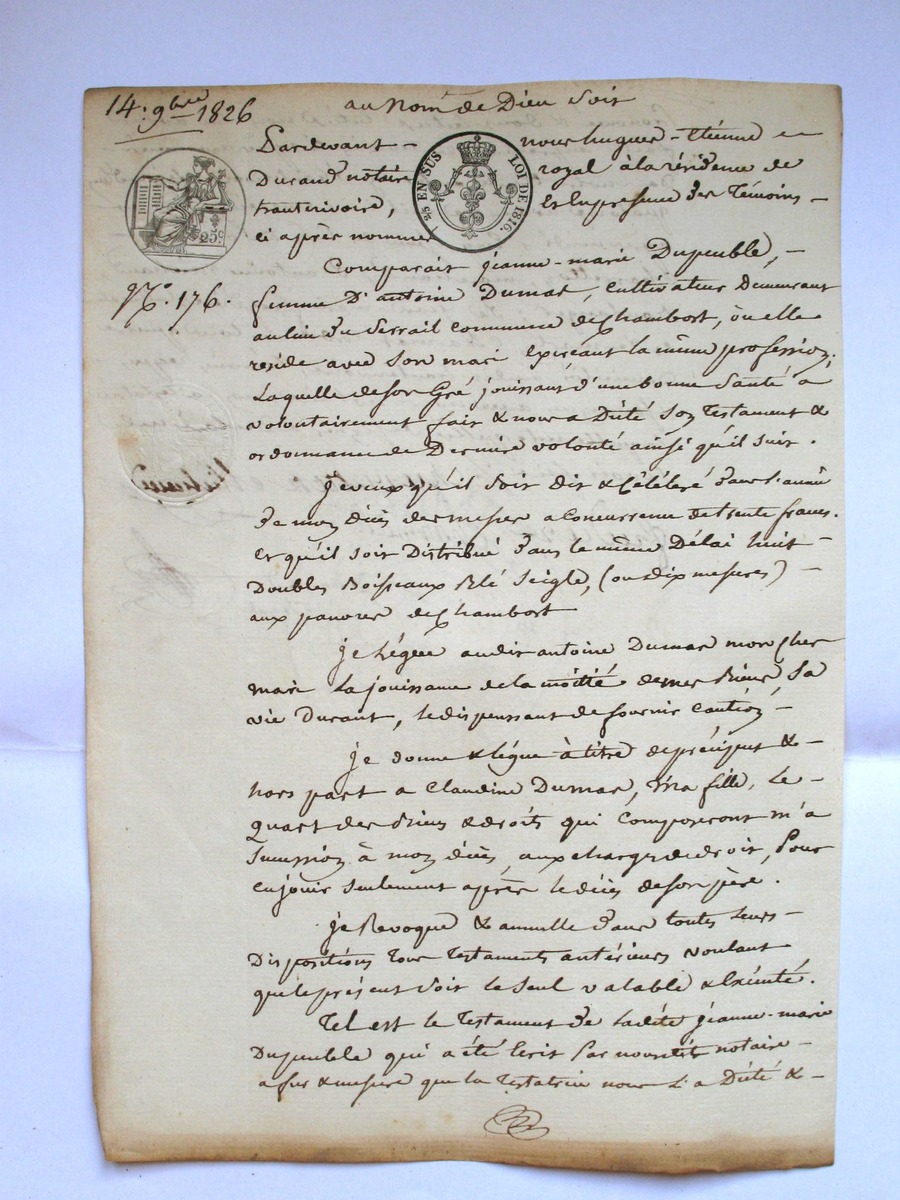 14: 9bre 1826
au Nom de Dieu soit
Pardevant - nous hugues-Étienne
Durand notaire royal à la résidence de
, Et En presence des Témoins -
ci après nommés
2/5 EN SUS LOI DE 1816.
25c
Comparait jeanne-marie Dupeuble, -
N.o 176.
femme D'antoine Dumas, cultivateur Demeurant
au lieu du Serrail commune de Chambost, où elle
reside avec Son mari exerçant la même profession.
Laquelle de son Gré jouissant d'une bonne Santé a
volontairement fait & nous a Dicté Son Testament &
ordonnance de Dernière volonté ainsi qu'il suit.
Je veux qu'il soit dit & Célébré dans l'année
de mon décès des messes a concurrence de trente francs.
Et qu'il soit Distribué dans le même Délai huit -
Doubles Boisseaux Blé Seigle, (ou dix mesures) -
aux pauvres de Chambost
je Légue audit antoine Dumas mon Cher
mari La jouissance de la moitié de mes Biens, Sa
vie Durant, le dispensant de fournir Caution -
je donne & légue à titre de préciput & -
hors part a Claudine Dumas, ma fille, Le -
Quart des Biens & droits qui Composeront m'a
Succession à mon décès, aux charges de droit, Pour
en jouir seulement après le décès de son père.
je Revoque & annulle dans toutes Leurs -
Dispositions Tous Testaments antérieurs voulant
que le présent soit le seul valable & Exécuté.
Tel est le Testament de Ladite jeanne-marie
Dupeuble qui a été Ecrit Par nousdit notaire -
a fur & mesure que la Testatrice nous L'a Dicté & -